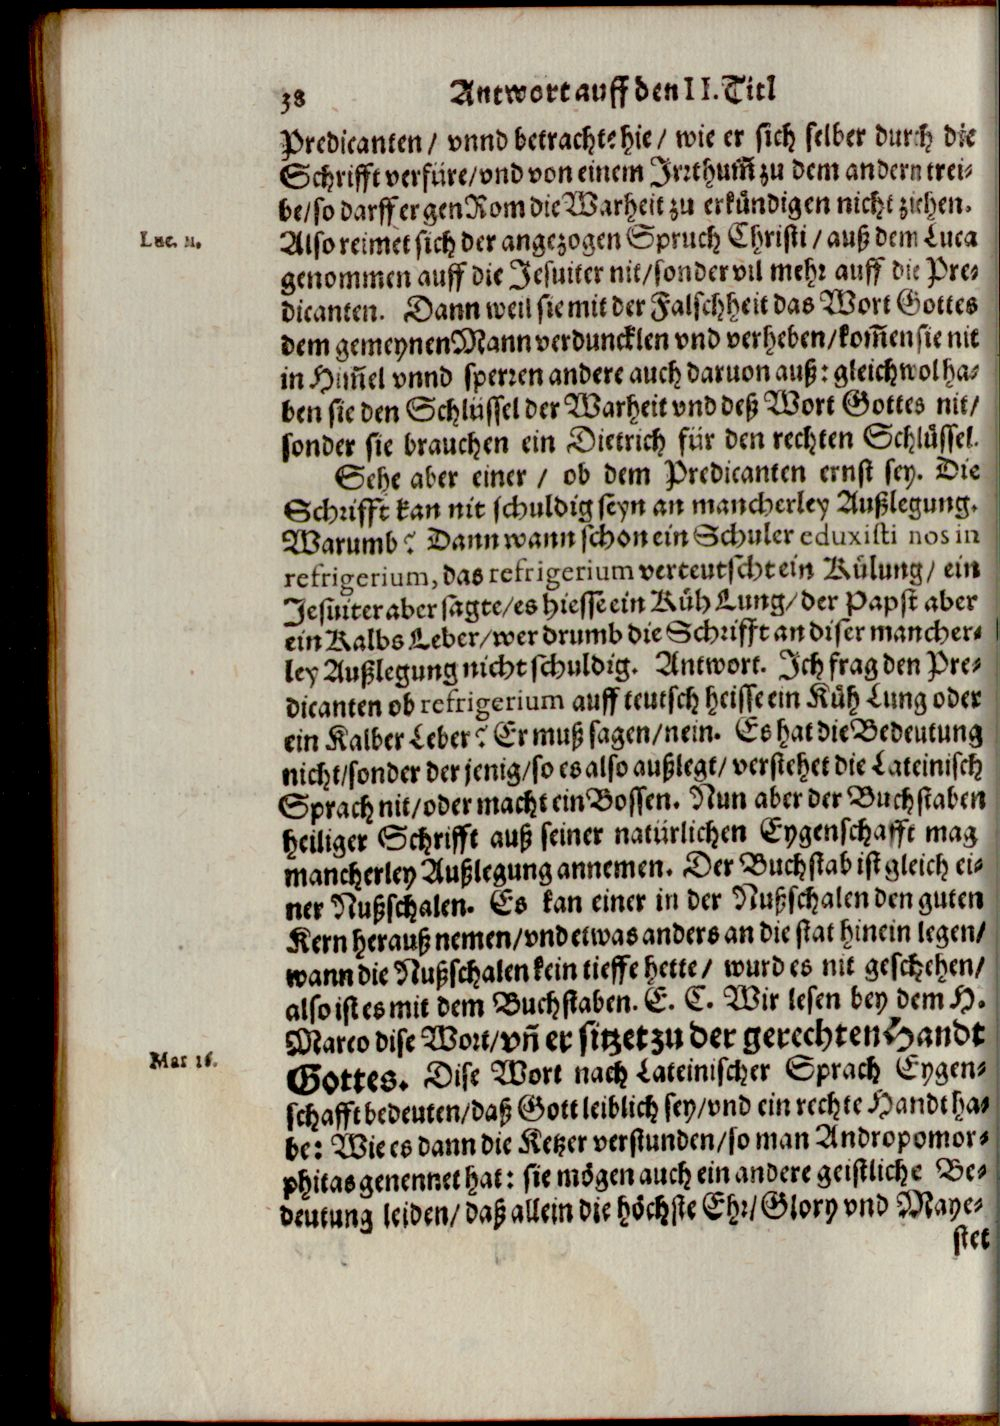 38 Antwort auff den II. Titl
Predicanten / vnnd betrachte hie / wie er sich selber durch die
Schrifft verfüre/vnd von einem Irrthum̃ zu dem andern trei-
be/so darff er gen Rom die Warheit zu erkündigen nicht ziehen.
Luc. 11.
Also reimet sich der angezogen Spruch Christi / auß dem Luca
genommen auff die Jesuiter nit/sonder vil mehr auff die Pre-
dicanten. Dann weil sie mit der Falschheit das Wort Gottes
dem gemeynen Mann verduncklen vnd verheben/kom̃en sie nit
in Him̃el vnnd sperren andere auch daruon auß: gleichwol ha-
ben sie den Schlüssel der Warheit vnd deß Wort Gottes nit/
sonder sie brauchen ein Dietrich für den rechten Schlüssel.
Sehe aber einer / ob dem Predicanten ernst sey. Die
Schrifft kan nit schuldig seyn an mancherley Außlegung.
Warumb? Dann wann schon ein Schuler eduxisti nos in
refrigerium, das refrigerium verteutscht ein Külung/ ein
Jesuiter aber sagte/es hiesse ein Küh Lung/der Papst aber
ein Kalbs Leber/wer drumb die Schrifft an diser mancher-
ley Außlegung nicht schuldig. Antwort. Ich frag den Pre-
dicanten ob refrigerium auff teutsch heisse ein Küh Lung oder
ein Kalber Leber? Er muß sagen/nein. Es hat die Bedeutung
nicht/sonder der jenig/so es also außlegt/ verstehet die Lateinisch
Sprach nit/oder macht ein Bossen. Nun aber der Buchstaben
heiliger Schrifft auß seiner natürlichen Eygenschafft mag
mancherley Außlegung annemen. Der Buchstab ist gleich ei-
ner Nußschalen. Es kan einer in der Nußschalen den guten
Kern herauß nemen/vnd etwas anders an die stat hinein legen/
wann die Nußschalen kein tieffe hette / wurd es nit geschehen/
also ist es mit dem Buchstaben. E. C. Wir lesen bey dem H.
Marco dise Wort/vñ er sitzet zu der gerechten Handt
Mar 16.
Gottes. Dise Wort nach Lateinischer Sprach Eygen-
schafft bedeuten/daß Gott leiblich sey/vnd ein rechte Handt ha-
be: Wie es dann die Ketzer verstunden/so man Andropomor-
phitas genennet hat: sie mögen auch ein andere geistliche Be-
deutung leiden/ daß allein die höchste Ehr/ Glory vnd Maye-
stet